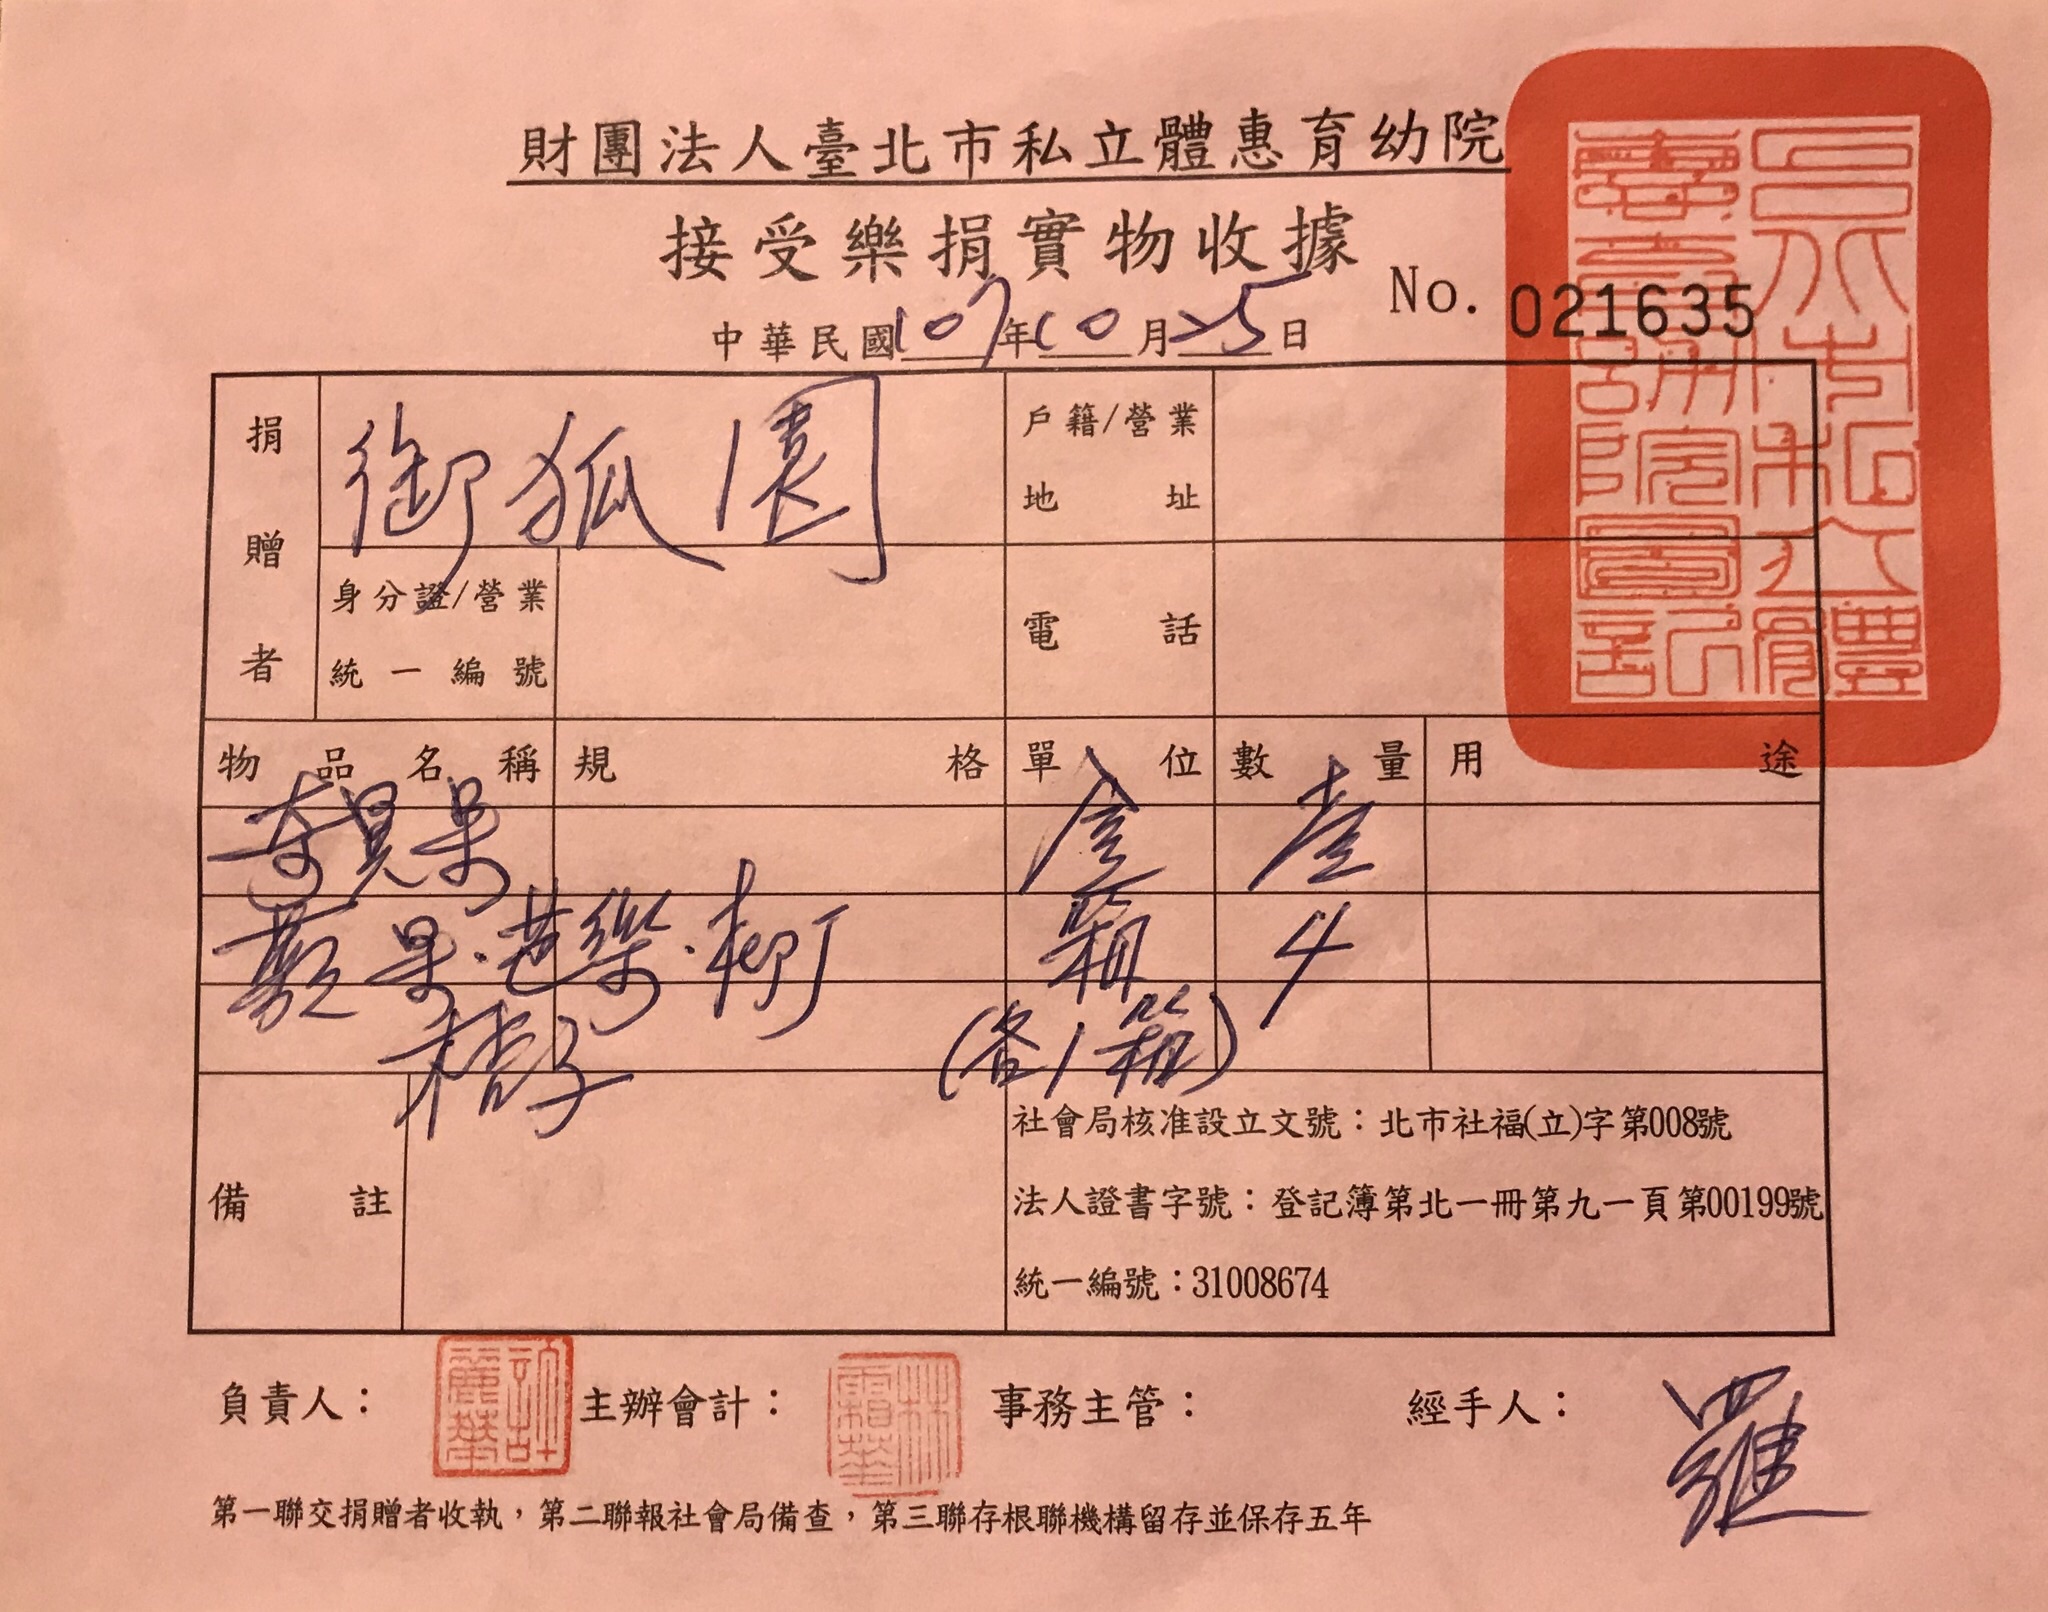 財團法人臺北市私立體惠育幼院
接受樂捐實物收據
No. 021635
中華民國107年10月25日
捐贈者 御狐園 戶籍/營業地址
身分證/營業統一編號 電話
物品名稱 規格 單位 數量 用途
奇異果 盒 壹
蘋果.芭樂.柳丁 箱 4
桔子 (各1箱)
備註
社會局核准設立文號：北市社福(立)字第008號
法人證書字號：登記簿第北一冊第九一頁第00199號
統一編號：31008674
負責人： 許麗華 主辦會計： 事務主管： 經手人： 羅
第一聯交捐贈者收執，第二聯報社會局備查，第三聯存根聯機構留存並保存五年